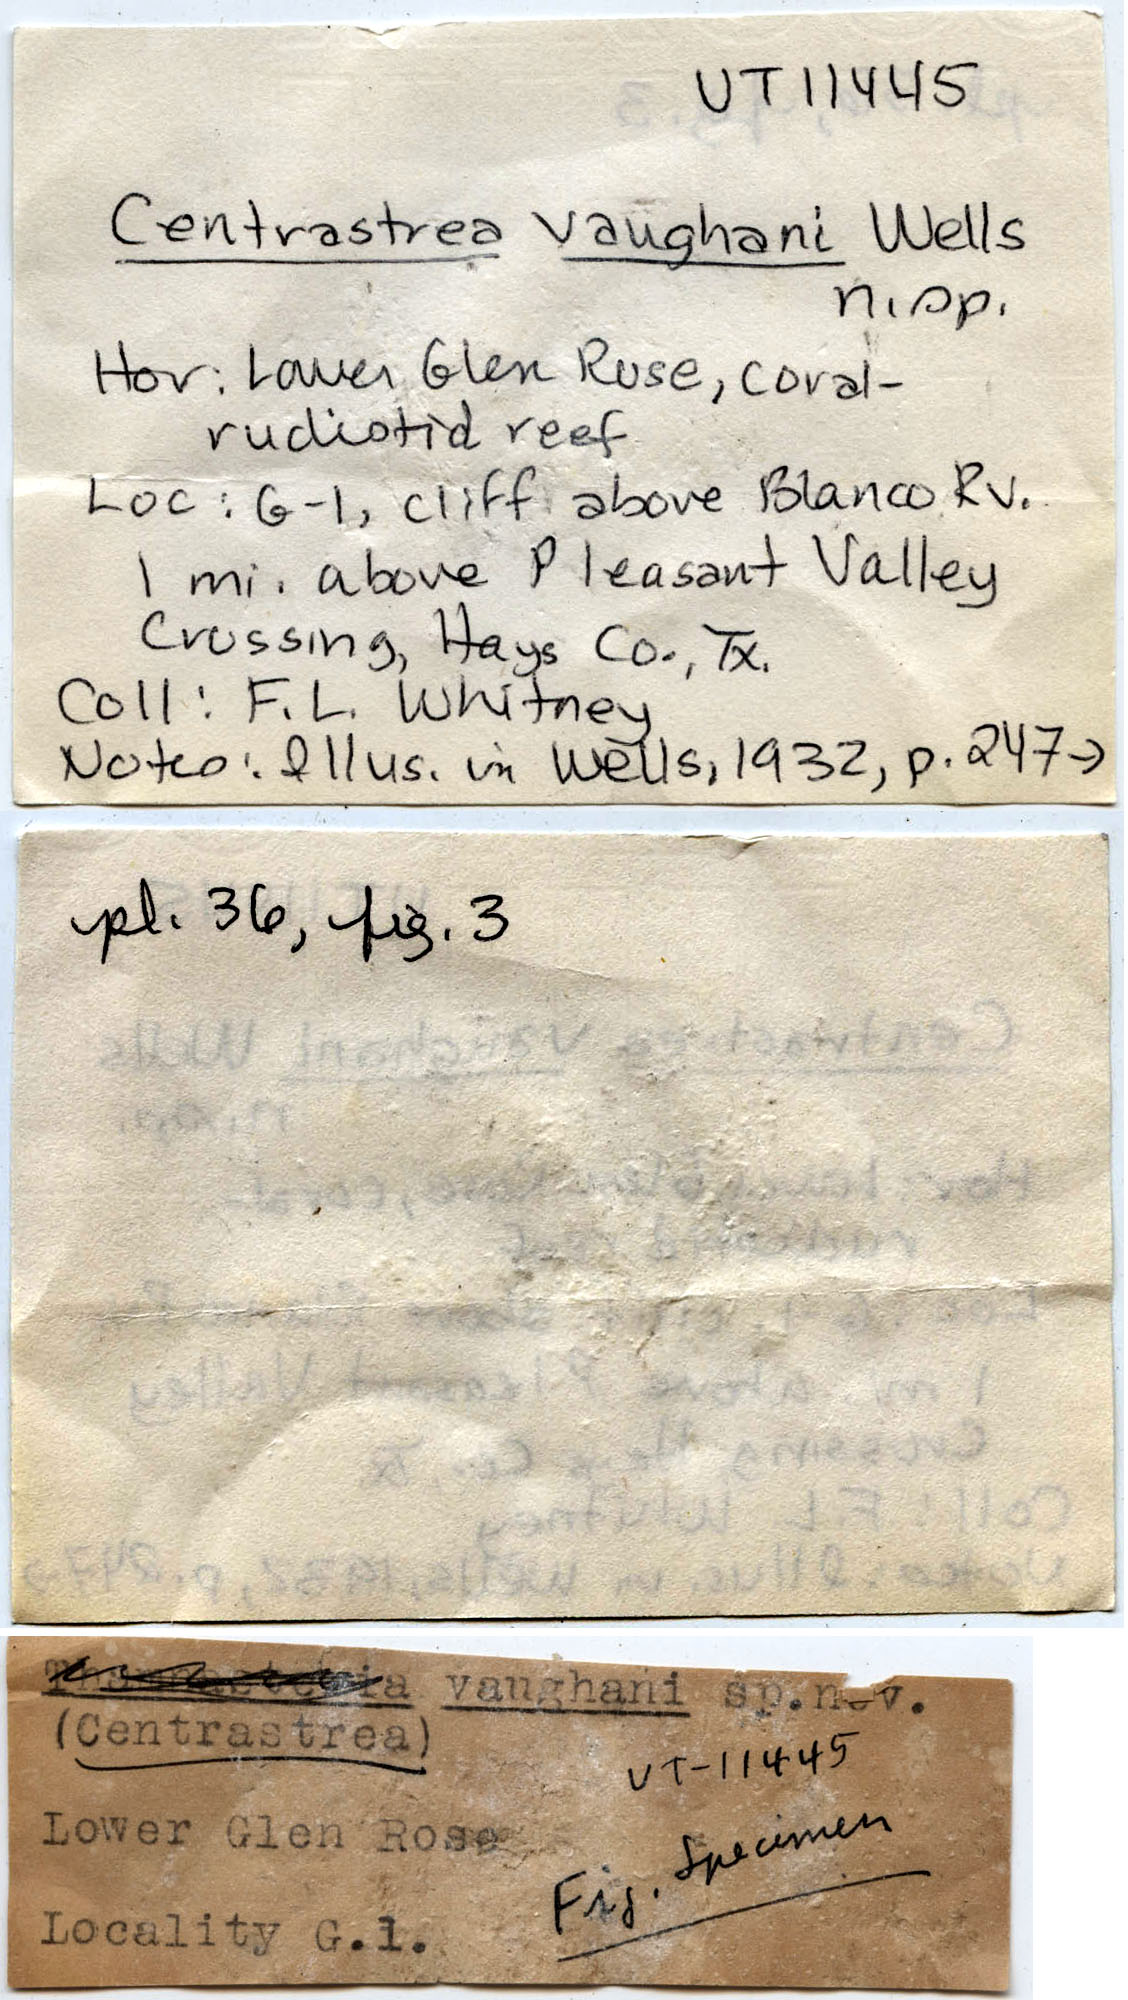 UT11445
Centrastrea vaughani Wells
n.sp.
Hor: Lower Glen Rose, coral-
rudistid reef
Loc: G-1, cliff above Blanco Rv.
1 mi. above Pleasant Valley
Crossing, Hays Co., Tx.
Coll: F.L. Whitney
Notes: Illus. in Wells, 1932, p. 247→
pl. 36, fig. 3
vaughani sp.nov.
(Centrastrea)
UT-11445
Lower Glen Rose
Fig. Specimen
Locality G.1.